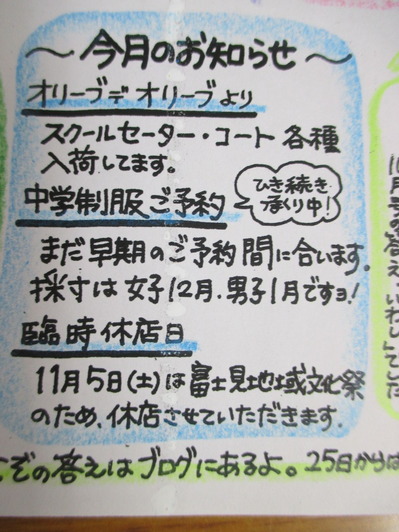 〜今月のお知らせ〜
オリーブデオリーブより
スクールセーター・コート各種
入荷してます。
中学制服ご予約
ひき続き
承り中!
まだ早期のご予約間に合います。
採寸は女子12月、男子1月ですョ!
臨時休店日
11月5日(土)は富士見地域文化祭
のため、休店させていただきます。
ぞの答えはブログにあるよ。25日からは
10月号の答え、いわしでした